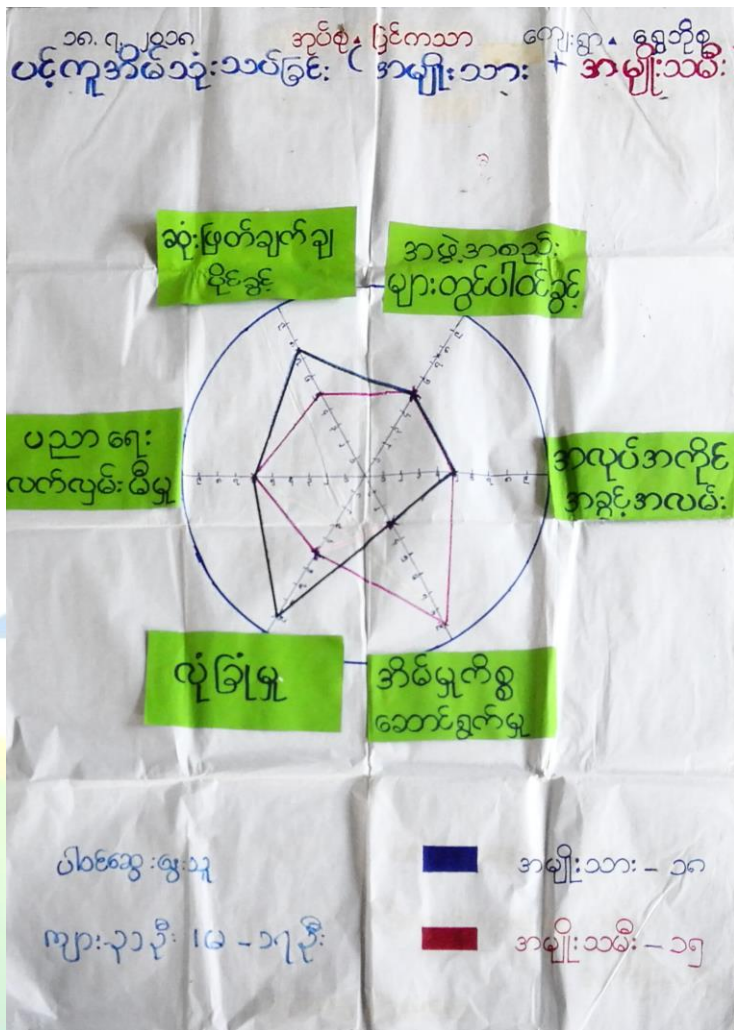 ၁၈.၇.၂၀၁၈ အုပ်စု - ပြင်ကသာ ကျေးရွာ - ရွှေဘိုစု
ပင့်ကူအိမ်သုံးသပ်ခြင်း (အမျိုးသား + အမျိုးသမီး
ဆုံးဖြတ်ချက်ချ
ပိုင်ခွင့်
အဖွဲ့အစည်း
များတွင်ပါဝင်ခွင့်
ပညာရေး
လက်လှမ်းမီမှု
အလုပ်အကိုင်
အခွင့်အလမ်း
လုံခြုံမှု
အိမ်မှုကိစ္စ
ဆောင်ရွက်မှု
ပါဝင်ဆွေးနွေးသူ
အမျိုးသား - ၁၈
ကျား - ၃၁ဦး ၊ မ - ၁၇ဦး
အမျိုးသမီး - ၁၅